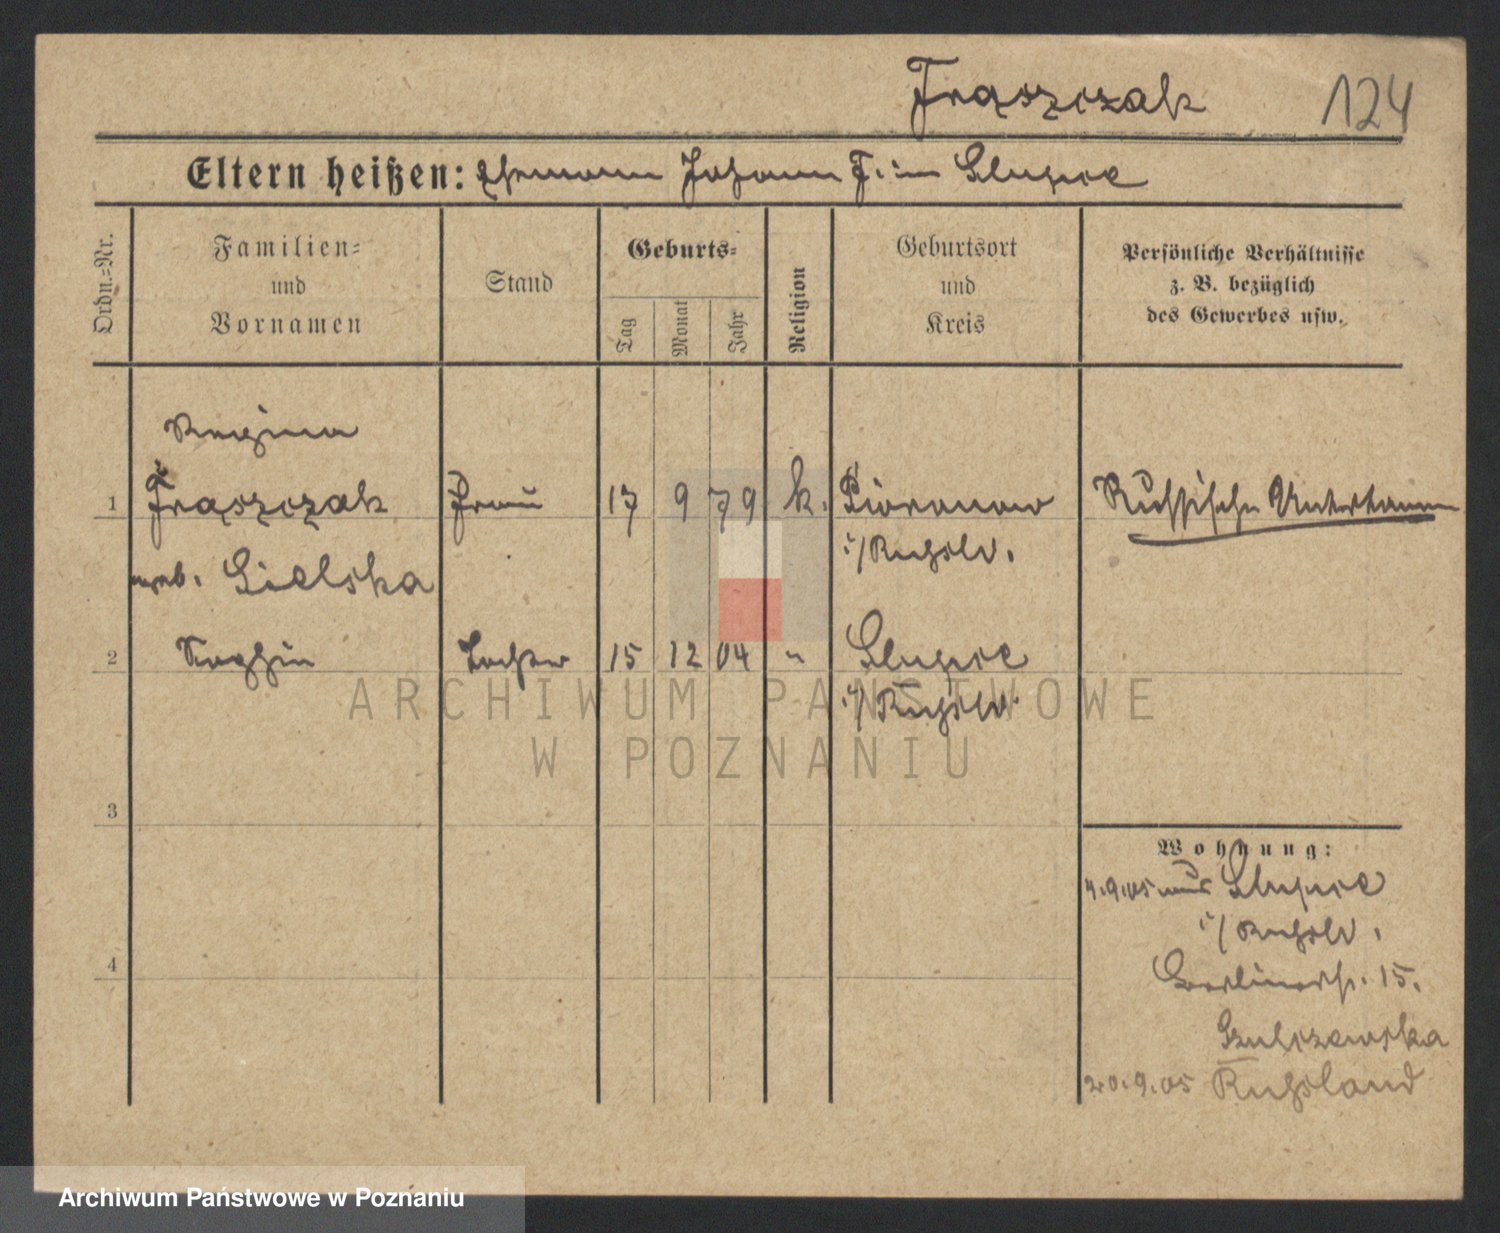 Frąszczak 124
Eltern heißen: Ehemann Johann F. in Slupce
Ordn.=Nr.
Familien=
und
Vornamen
Stand
Geburts=
Tag
Monat
Jahr
Religion
Geburtsort
und
Kreis
Persönliche Verhältnisse
z. B. bezüglich
des Gewerbes usw.
Regina
1 Frąszczak Frau 17 9 79 k. Russische Unterthanen
i/Rußld.
geb. Gielska
2 Tochter 15 12 04 " Slupce
i/Rußld.
3
4
Wohnung:
4.9.05 aus Slupce
i/Rußld.
Berlinerstr. 15.
Szulczewska
20.9.05 Rußland
ARCHIWUM PAŃSTWOWE
W POZNANIU
Archiwum Państwowe w Poznaniu